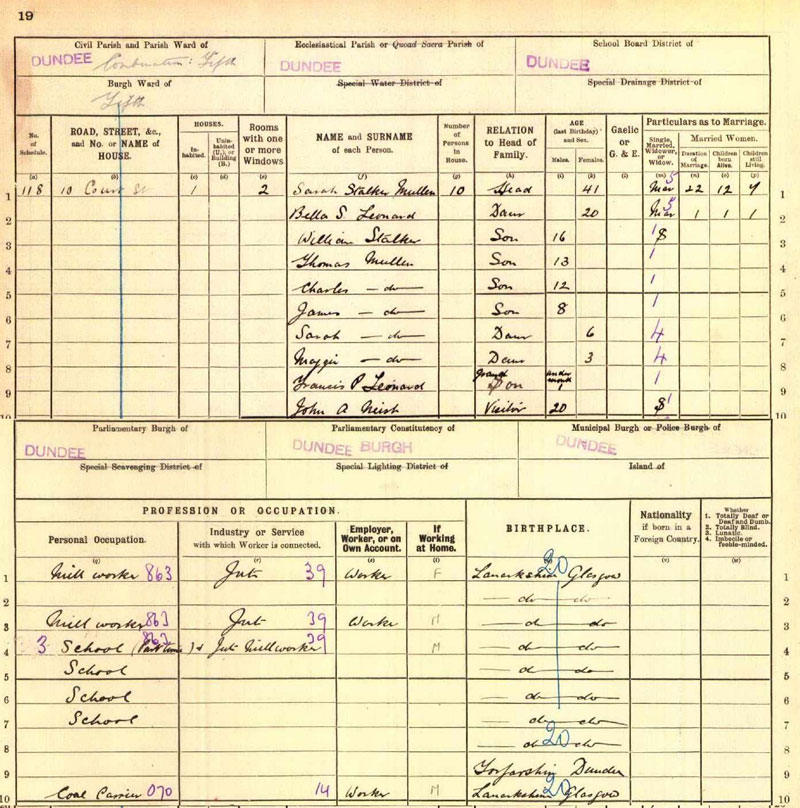 19
Civil Parish and Parish Ward of
DUNDEE Combination: Fifth
Burgh Ward of
Fifth
Ecclesiastical Parish or Quoad Sacra Parish of
DUNDEE
Special Water District of
School Board District of
DUNDEE
Special Drainage District of
No. of Schedule. (a)
ROAD, STREET, &c., and No. or NAME of HOUSE. (b)
HOUSES.
Inhabited. (c)
Uninhabited (U.), or Building (B.) (d)
Rooms with one or more Windows (e)
NAME and SURNAME of each Person. (f)
Number of Persons in House. (g)
RELATION to Head of Family. (h)
AGE (last Birthday) and Sex.
Males. (i) Females. (k)
Gaelic or G. & E. (l)
Particulars as to Marriage.
Single, Married, Widower, or Widow. (m)
Married Women.
Duration of Marriage. (n) Children born Alive. (o) Children still Living. (p)
1 118 10 Court St 1 2 Sarah Stalker Mullen 10 Head 41 Mar 5 22 12 7 1
2 Bella S Leonard Daur 20 Mar 5 1 1 1 2
3 William Stalker Son 16 S 1 3
4 Thomas Mullen Son 13 1 4
5 Charles — do — Son 12 1 5
6 James — do — Son 8 1 6
7 Sarah — do — Daur 6 4 7
8 Maggie — do — Daur 3 4 8
9 Francis P Leonard Grand Son under month 1 9
10 John A Neish Visitor 20 S 1 10
Parliamentary Burgh of
DUNDEE
Special Scavenging District of
Parliamentary Constituency of
DUNDEE BURGH
Special Lighting District of
Municipal Burgh or Police Burgh of
DUNDEE
Island of
PROFESSION OR OCCUPATION.
Personal Occupation. (q)
Industry or Service with which Worker is connected. (r)
Employer, Worker, or on Own Account. (s)
If Working at Home. (t)
BIRTHPLACE.
Nationality if born in a Foreign Country. (v)
Whether
1. Totally Deaf or Deaf and Dumb.
2. Totally Blind.
3. Lunatic.
4. Imbecile or feeble-minded.
(w)
1 Mill worker 863 Jute 39 Worker F Lanarkshire Glasgow 20 1
2 — do — do — 2
3 Mill worker 863 Jute 39 Worker M — do — do 3
4 3 School (Part time) & Jute Mill worker 863 39 M — do — do 4
5 School — do — do 5
6 School — do — do 6
7 School — do — do 7
8 — do — do 20 8
9 Forfarshire Dundee 9
10 Coal Carrier 070 14 Worker M Lanarkshire Glasgow 20 10